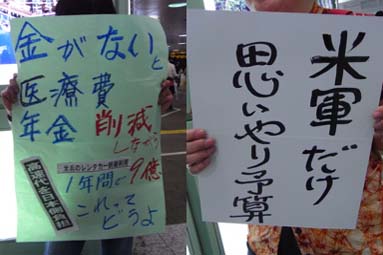 金がないと
医療費
年金 削減
しながら
米兵のレンタカー
高速代を日本側負担
1年間で9億
これって
どうよ
米軍だけ
思いやり予算